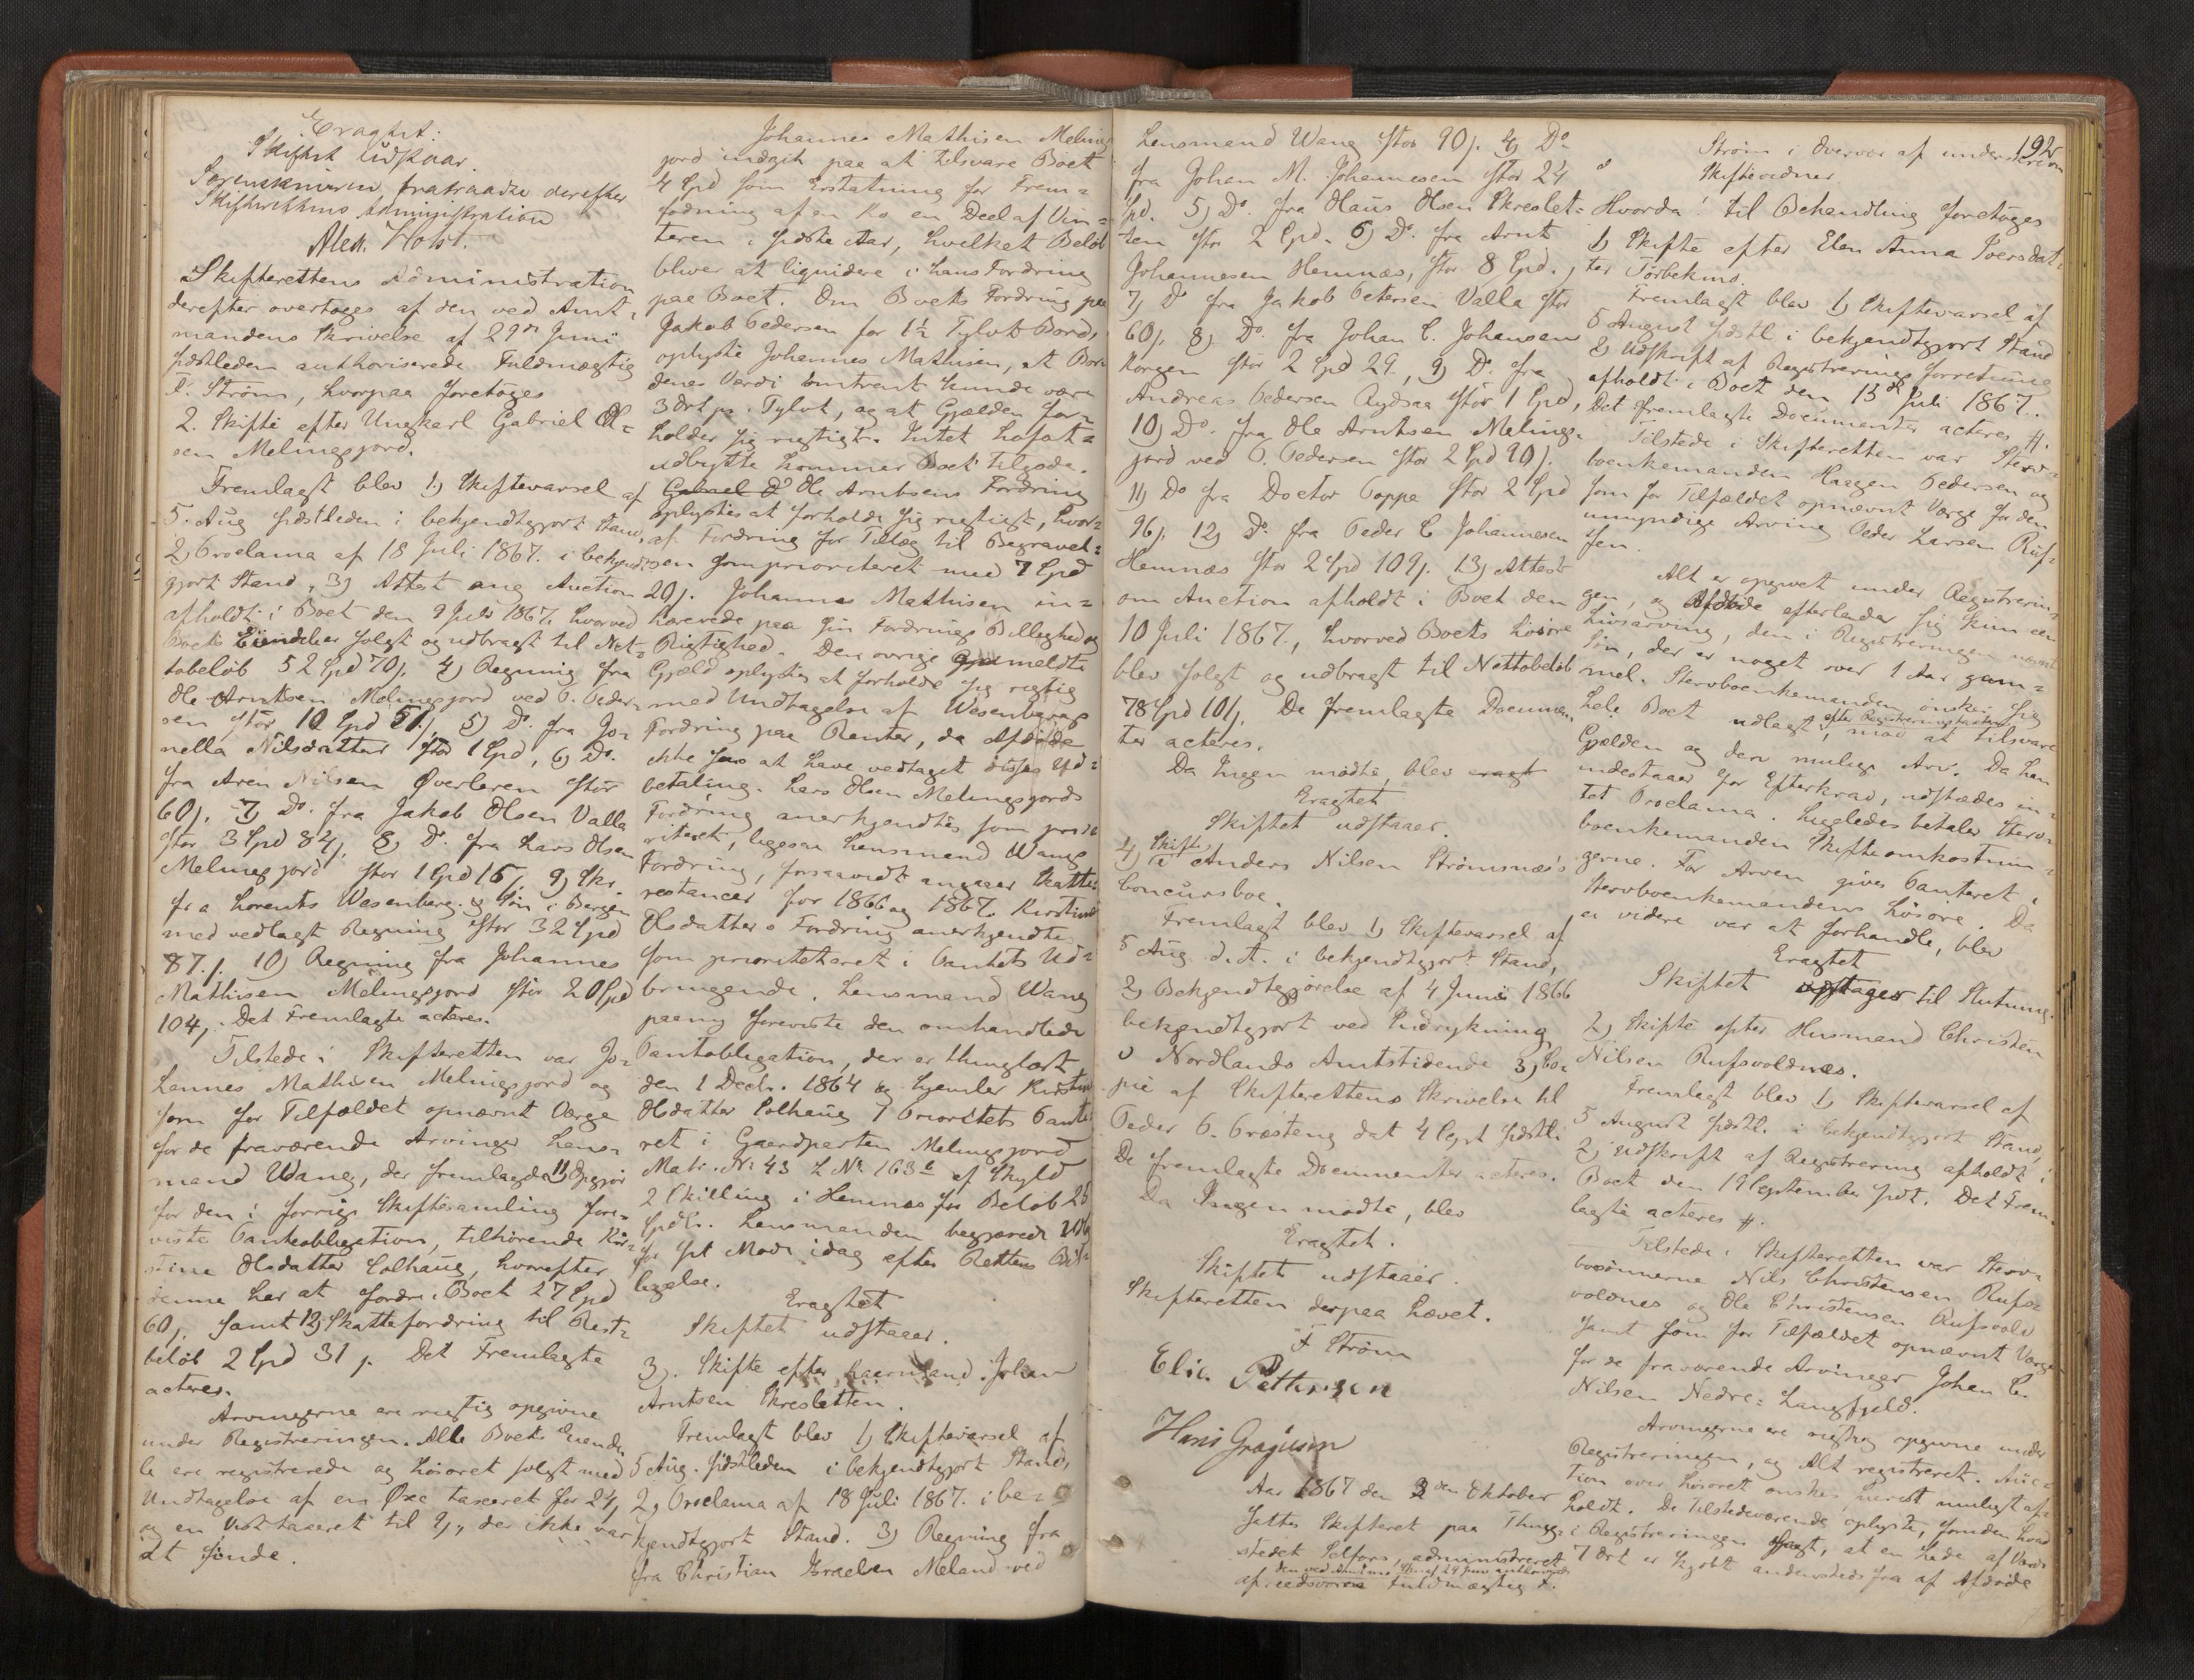 Eragtet:
Skiftet udstaar.
Sorenskriveren fratraadte derefter
Skifterettens Administration
Alex. Holst.
Skifterettens Administration
derefter overtoges af den ved Amt-
mandens Skrivelse af 29de Juni
sidstleden authoriserede Fuldmægtig
F. Strøm, hvorpaa foretoges
2. Skifte efter Ungkarl Gabriel Ol-
sen Melingsjord.
Fremlagt blev 1) Skiftevarsel af
5. Aug sidstleden i bekjendtgjort Stand,
2) Proclama af 18 Juli 1867. i bekjendt-
gjort Stand, 3) Attest ang Auction
afholdt i Boet den 9 Juli 1867. hvorved
Boets Eiendeler solgt og udbragt til Net-
tobeløb 52 Spd 70 s. 4) Regning fra
Ole Arntsen Melingsjord ved P. Peder-
sen stor 10 Spd 51 s, 5) Do. fra Jo-
nella Nilsdatter stor 1 Spd, 6) Do.
fra Aren Nilsen Øverleren stor
60 s. 7) Do. fra Jakob Olsen Valla
stor 3 Spd 84 s, 8) Do. fra Lars Olsen
Melingsjord stor 1 Spd 15 s, 9) Skr.
fra Lorents Wesenberg & Søn i Bergen
med vedlagt Regning stor 32 Spd
87 s. 10) Regning fra Johannes
Mathisen Melingsjord stor 20 Spd
104 s. Det Fremlagte acteres.
Tilstede i Skifteretten var Jo-
hannes Mathisen Melingsjord og
som for Tilfældet opnævnt Værge
for de fraværende Arvinger Lens-
mand Wang, der fremlagde 11) Opgjør
for den i forrige Skiftesamling fore-
viste Panteobligation, tilhørende Kir-
stine Olsdatter Solhaug, hvorefter
denne har at fordre i Boet 27 Spd
60 s. samt 12) Skattefordring til Rest-
beløb 2 Spd 31 s. Det Fremlagte
acteres.
Arvingerne ere rigtig opgivne
under Registreringen. Alle Boets Eiende-
le ere registrerede og Løsøret solgt med
Undtagelse af en Øxe taxeret for 24 s
og en Vest taxeret til s, der ikke var
at finde.
Johannes Mathisen Melings-
jord indgik paa at tilsvare Boet
4 Spd som Erstatning for Frem-
fødning af en Ko en Deel af Vin-
teren i sidste Aar, hvilket Beløb
bliver at liquidere i hans Fordring
paa Boet. Om Boets Fordring paa
Jakob Pedersen for 1½ Tylvt Bord,
oplyste Johannes Mathisen, at Bor-
denes Værdi omtrent kunde være
3 Ort pr. Tylvt, og at Gjælden for-
holder sig rigtigt. Intet Lofot-
udbytte kommer Boet tilgode.
Gabriel O Ole Arntsens Fordring
oplystes at forholde sig rigtigt, hvor-
af Fordring for Tilæg til Begravel-
sen som prioriteret med 7 Spd
20 s. Johannes Mathisen in-
hærerede paa sin Fordrings Billighed og
Rigtighed. Den øvrige anmeldte
Gjæld oplystes at forholde sig rigtig
med Undtagelse af Wesenbergs
Fordring paa Renter, da Afdøde
ikke sees at have vedtaget disses Ud-
betaling. Lars Olsen Melingsjords
Fordring anerkjendtes som prio-
riteret, ligesaa Lensmand Wangs
Fordring, forsaavidt angaaer Skatte-
restancer for 1866 og 1867. Kirstine
Olsdatters Fordring anerkjendtes
som prioriteteret i Pantets Ud-
bringende. Lensmand Wang
paany foreviste den omhandlede
Panteobligation, der er thinglæst
den 1 Decbr. 1864 og hjemler Kirstine
Olsdatter Solhaug 1 Prioritets Pante-
ret i Gaardparten Melingsjord
Matr. Nr 43 L Nr 163 c af Skyld
2 Skilling i Hemnæs for Beløb 25
Spdlr. Lensmanden begjærede
for sit Møde idag efter Rettens Bil-
ligelse.
Eragtet
Skiftet udstaaer.
3). Skifte efter Johan
Arntsen Skresletten.
Fremlagt blev 1) Skiftevarsel af
5 Aug. sidstleden i bekjendtgjort Stand,
2) Proclama af 18 Juli 1867. i be-
kjendtgjort Stand. 3) Regning fra
fra Christian Israelsen Meland ved
Lensmand Wang stor 90 s. 4) Do
fra Johan M. Johannesen stor 24
Spd. 5) Do. fra Hans Olsen Skreslet-
ten stor 2 Spd. 6) Do. fra Arnt
Johannesen Hemnæs, stor 8 Spd.,
7) Do fra Jakob Petersen Valla stor
60 s. 8) Do. fra Johan C. Johansen
Korgen stor 2 Spd 29., 9) Do. fra
Andreas Pedersen Rydsaa stor 1 Spd,
10) Do. fra Ole Arntsen Melings-
jord ved P. Pedersen stor 2 Spd 90 s.
11) Do fra Doctor Coppe stor 2 Spd
96 s. 12) Do. fra Peder C Johannesen
Hemnæs stor 2 Spd 109 s. 13) Attest
om Auction afholdt i Boet den
10 Juli 1867., hvorved Boets Løsøre
blev solgt og udbragt til Nettobeløb
78 Spd 101 s. De fremlagte Documen-
ter acteres.
Da Ingen mødte, blev eragt
Eragtet
Skiftet udstaaer.
4) Skifte Anders Nilsen Strømsnæs's
Concursboe.
Fremlagt blev 1) Skiftevarsel af
5 Aug. d. A. i bekjendtgjort Stand,
2) Bekjendtgjørelse af 4 Juni 1866
bekjendtgjort ved Indrykning
i Nordlands Amtstidende 3) Co-
pie af Skifterettens Skrivelse til
Peder P. Præsteng dat 4 Sept sidstl.
De fremlagte Documenter acteres.
Da Ingen mødte, blev
Eragtet.
Skiftet udstaaer.
Skifteretten derpaa hævet.
F Strøm
Elias Pettersen
Hans Gregusen
Aar 1867 den 3 den Oktober
sattes Skifteret paa Thing-
stedet Selfors, administreret
den ved Amtms. Skr. af 29 Juni authoriserede
af Fuldmægtig F.
192
Strøm i Overvær af underskrevne
Skiftevidner
Hvorda! til Behandling foretoges
1) Skifte efter Elen Anna Iversdat-
ter Tørbekmo.
Fremlagt blev 1) Skiftevarsel af
5 August sidstl i bekjendtgjort Stand
2) Udskrift af Registreringsforretning
afholdt i Boet den 13de Juli 1867.
Det fremlagte Documenter acteres #.
Tilstede i Skifteretten var Sterv-
boenkemanden Haagen Pedersen og
som for Tilfældet opnævnt Værge for den
umyndige Arving Peder Larsen Rufs-
sen.
Alt er opgivet under Registrerin-
gen, og Afdøde efterlader sig kun een
Livsarving, den i Registreringen nævnte
Søn, der er noget over 1 Aar gam-
mel. Stervboenkemanden ønsker sig
hele Boet udlagt, efter Registreringstaxten mod at tilsvare
Gjælden og den mulige Arv. Da han
indestaaer for Efterkrav, udstædes in-
tet Proclama. Ligeledes betaler Sterv-
boenkemanden Skifteomkostnin-
gerne. For Arven gives Panteret i
Stervboenkemandens Løsøre. Da
ei videre var at forhandle, blev
Eragtet
Skiftet optages til Slutning.
2) Skifte efter Husmand Christen
Nilsen Rufsvoldnes.
Fremlagt blev 1) Skiftevarsel af
5 August sidstl. i bekjendtgjort Stand,
2) Udskrift af Registrering afholdt i
Boet den 19 September sidst. Det Frem-
lagte acteres #.
Tilstede i Skifteretten var Sterv-
bosønnerne Nils Christensen Rufs-
voldnes og Ole Christensen Rufsvold
samt som for Tilfældet opnævnt Værge
for de fraværende Arvinger Johan C.
Nilsen Nedre-Langfjeld.
Arvingerne ere rigtig opgivne under
Registreringen, og Alt registreret. Auc-
tion over Løsøret ønskes snarest muligst af-
holdt. De Tilstedeværende oplyste, foruden hvad
i Registreringen sagt, at en Lade af Værdi
7 Ort er kjøbt andensteds fra af Afdøde